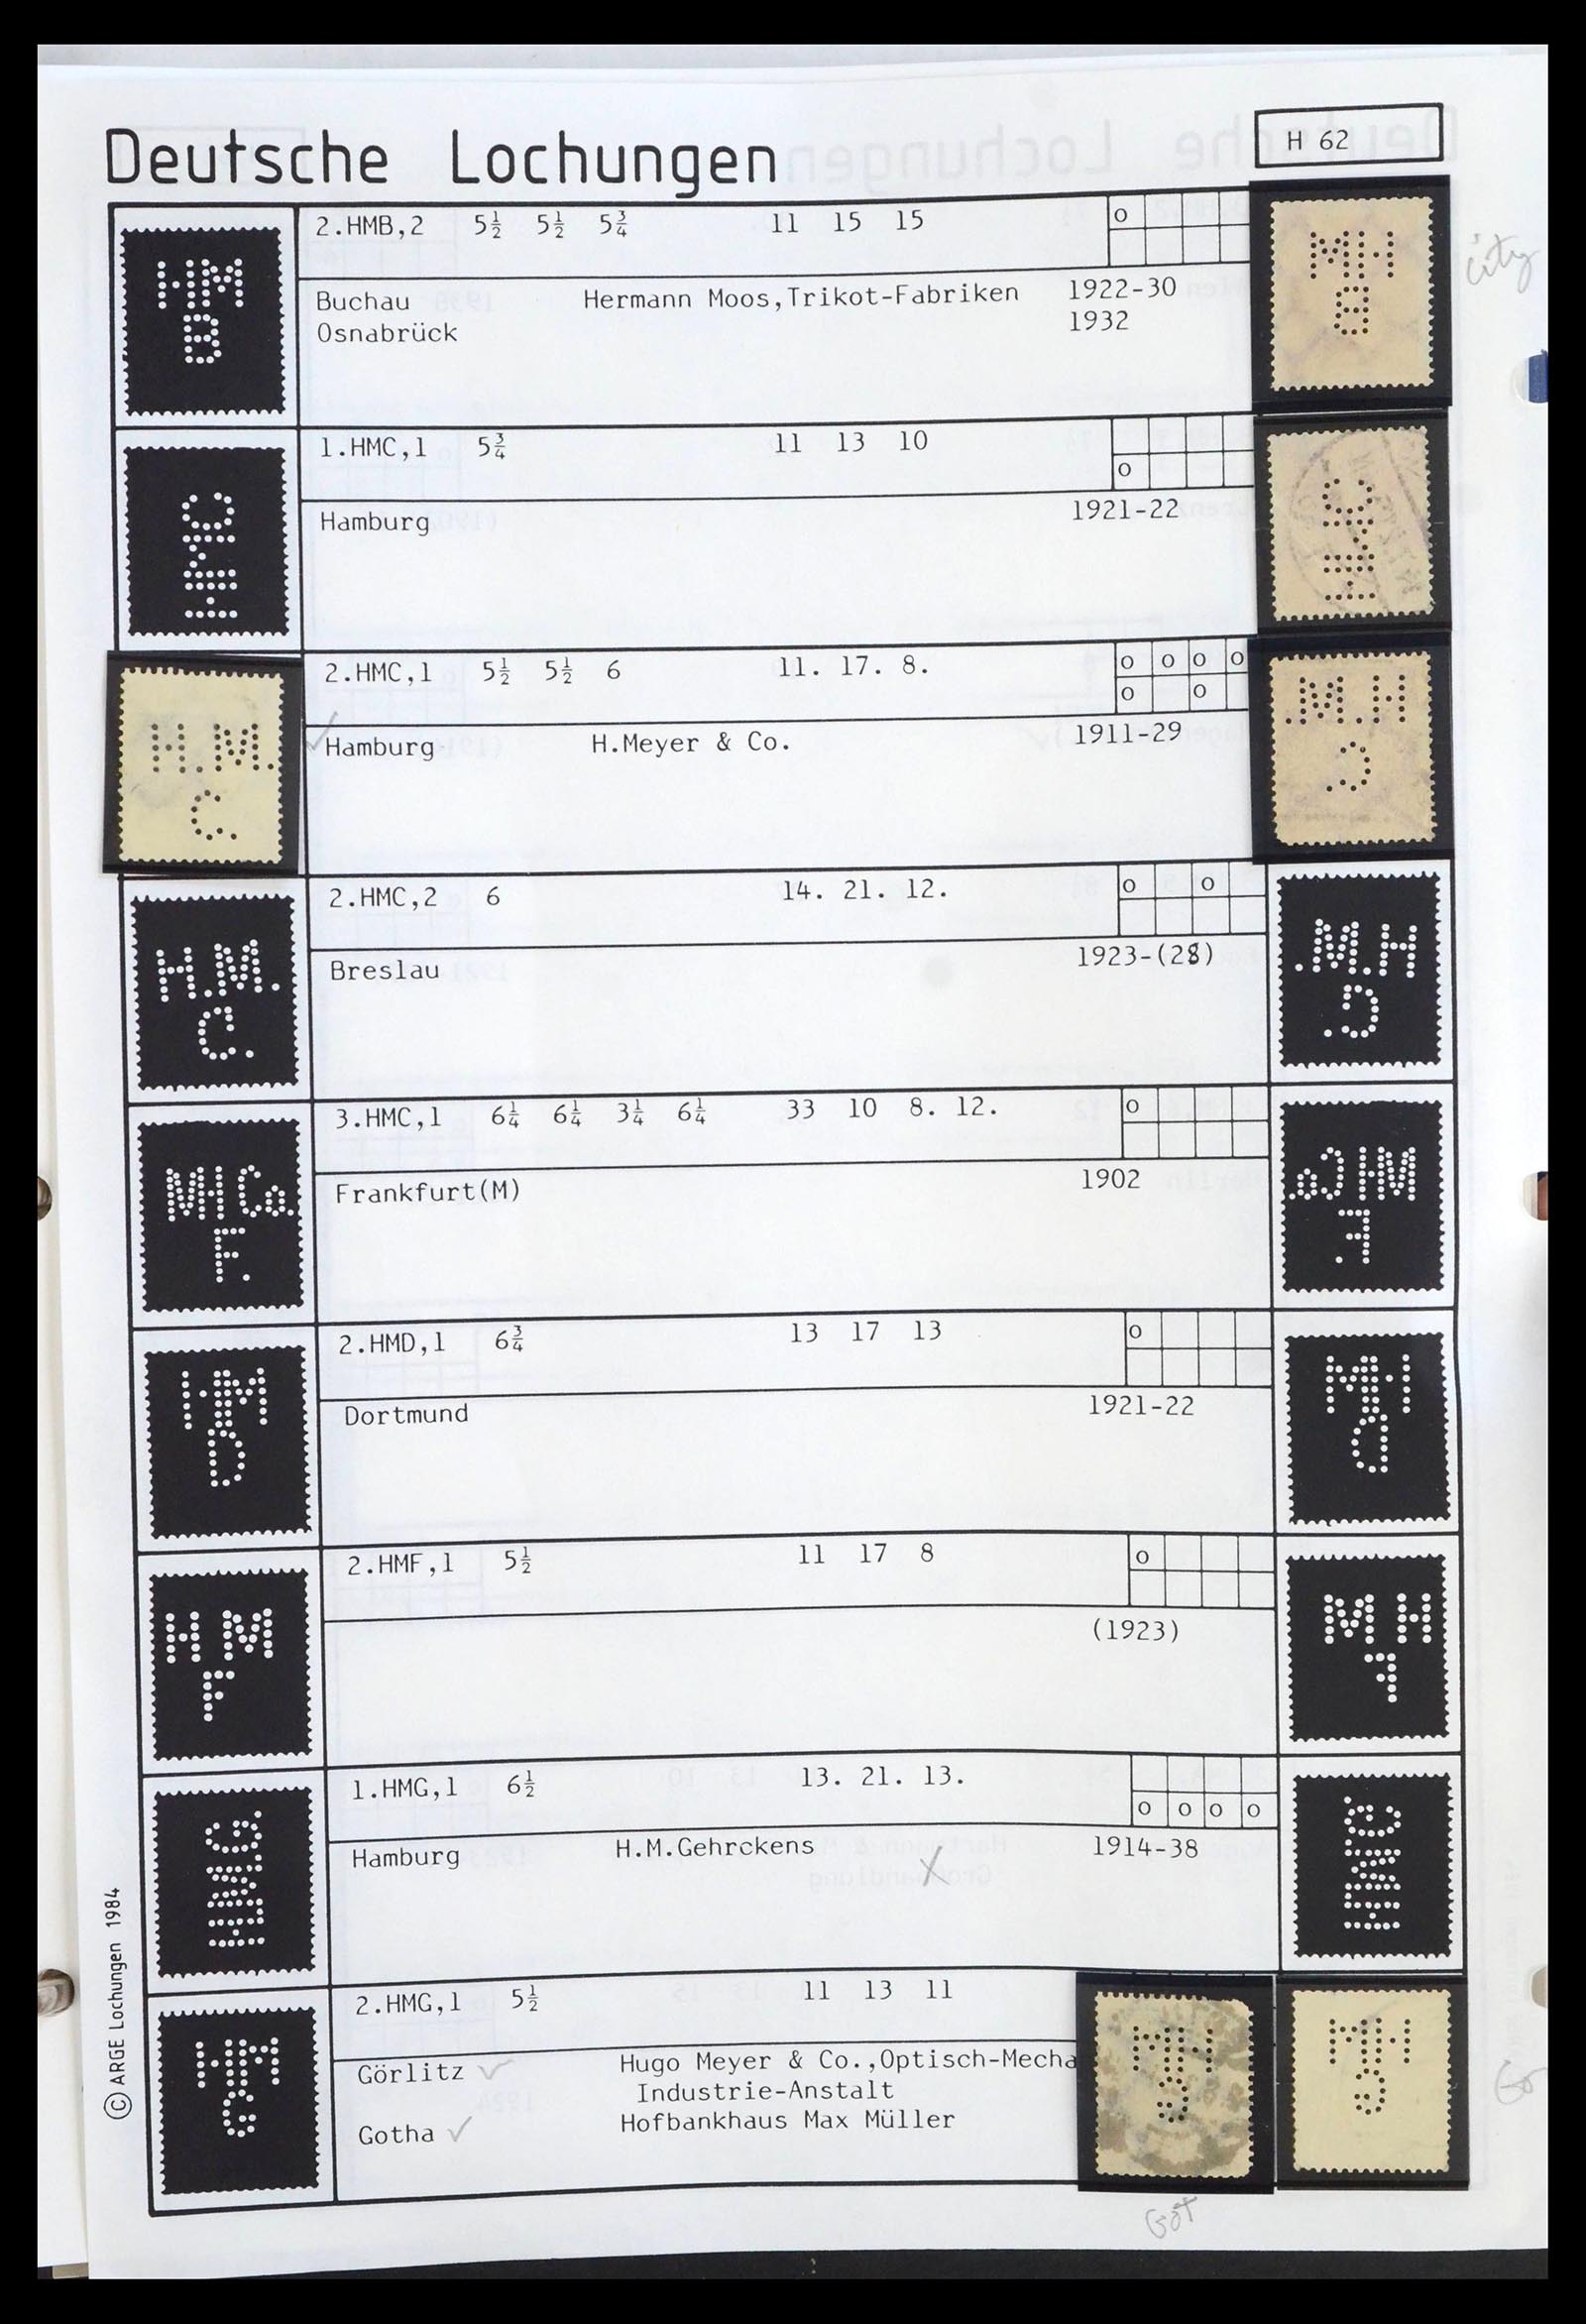 Deutsche Lochungen
H 62
HM
B
2.HMB,2 5½ 5½ 5¾ 11 15 15
o
HM
B
city
Buchau Hermann Moos,Trikot-Fabriken 1922-30
Osnabrück 1932
HMC
1.HMC,1 5¾ 11 13 10
o
HMC
Hamburg 1921-22
H.M.
C.
2.HMC,1 5½ 5½ 6 11. 17. 8.
o o o o
o o
H.M.
C
Hamburg H.Meyer & Co. 1911-29
H.M.
C.
2.HMC,2 6 14. 21. 12.
o o
H.M.
C.
Breslau 1923-(28)
MHCo.
F.
3.HMC,1 6¼ 6¼ 3¼ 6¼ 33 10 8. 12.
o
MHCo.
F.
Frankfurt(M) 1902
HM
D
2.HMD,1 6¾ 13 17 13
o
HM
D
Dortmund 1921-22
HM
F
2.HMF,1 5½ 11 17 8
o
HM
F
(1923)
HMG.
1.HMG,1 6½ 13. 21. 13.
o o o o
HMG.
Hamburg H.M.Gehrckens 1914-38
HM
G
2.HMG,1 5½ 11 13 11
HM
G
HM
G
Görlitz Hugo Meyer & Co.,Optisch-Mecha
Industrie-Anstalt
Gotha Hofbankhaus Max Müller
Got
© ARGE Lochungen 1984